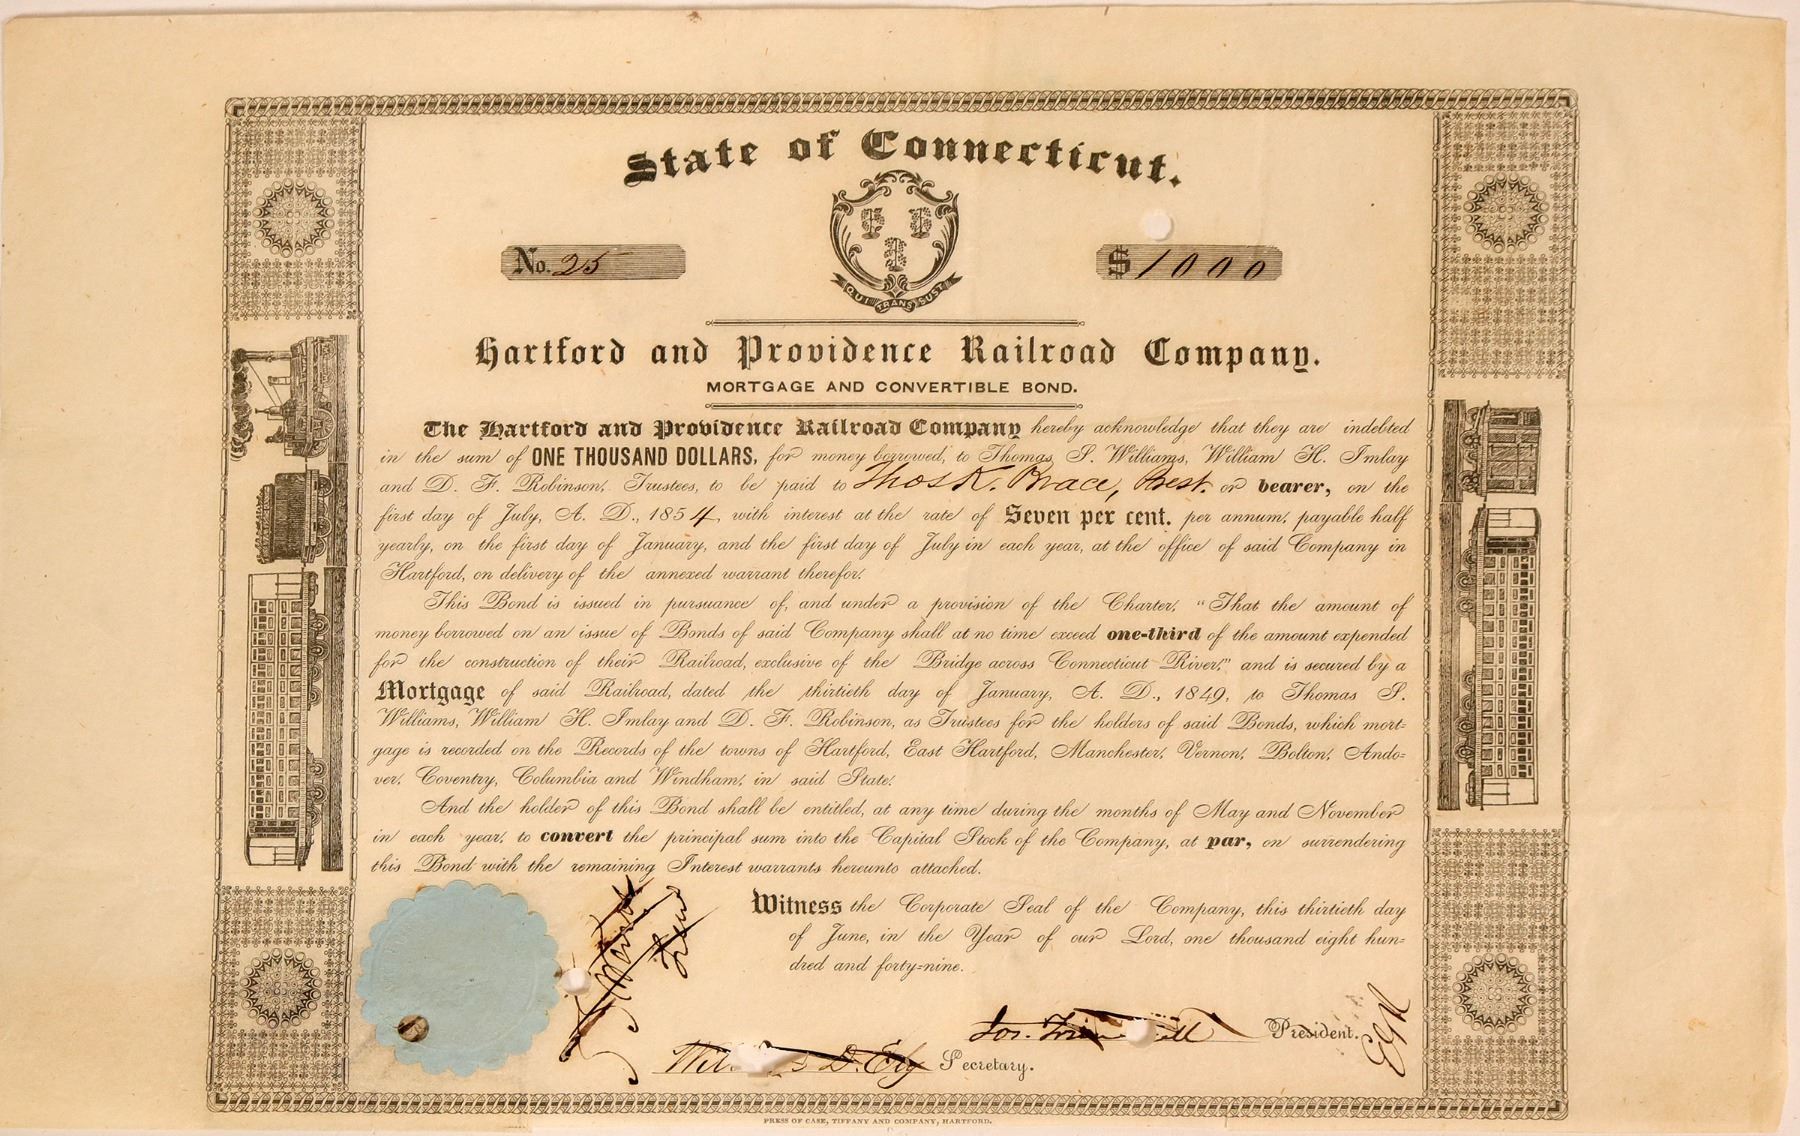 State of Connecticut.
QUI TRANS SUST
No. 25
$1000
Hartford and Providence Railroad Company.
MORTGAGE AND CONVERTIBLE BOND.
The Hartford and Providence Railroad Company hereby acknowledge that they are indebted
in the sum of ONE THOUSAND DOLLARS, for money borrowed, to Thomas S. Williams, William H. Imlay
and D. F. Robinson, Trustees, to be paid to Thos K. Brace, Prest. or bearer, on the
first day of July, A. D., 1854, with interest at the rate of Seven per cent. per annum, payable half
yearly, on the first day of January, and the first day of July in each year, at the office of said Company in
Hartford, on delivery of the annexed warrant therefor.
This Bond is issued in pursuance of, and under a provision of the Charter, "That the amount of
money borrowed on an issue of Bonds of said Company shall at no time exceed one-third of the amount expended
for the construction of their Railroad, exclusive of the Bridge across Connecticut River," and is secured by a
Mortgage of said Railroad, dated the thirtieth day of January, A. D., 1849, to Thomas S.
Williams, William H. Imlay and D. F. Robinson, as Trustees for the holders of said Bonds, which mort-
gage is recorded on the Records of the towns of Hartford, East Hartford, Manchester, Vernon, Bolton, Ando-
ver, Coventry, Columbia and Windham, in said State.
And the holder of this Bond shall be entitled, at any time during the months of May and November
in each year, to convert the principal sum into the Capital Stock of the Company, at par, on surrendering
this Bond with the remaining Interest warrants hereunto attached.
Witness the Corporate Seal of the Company, this thirtieth day
of June, in the Year of our Lord, one thousand eight hun-
dred and forty-nine.
Jos. President.
D. Ely Secretary.
PRESS OF CASE, TIFFANY AND COMPANY, HARTFORD.